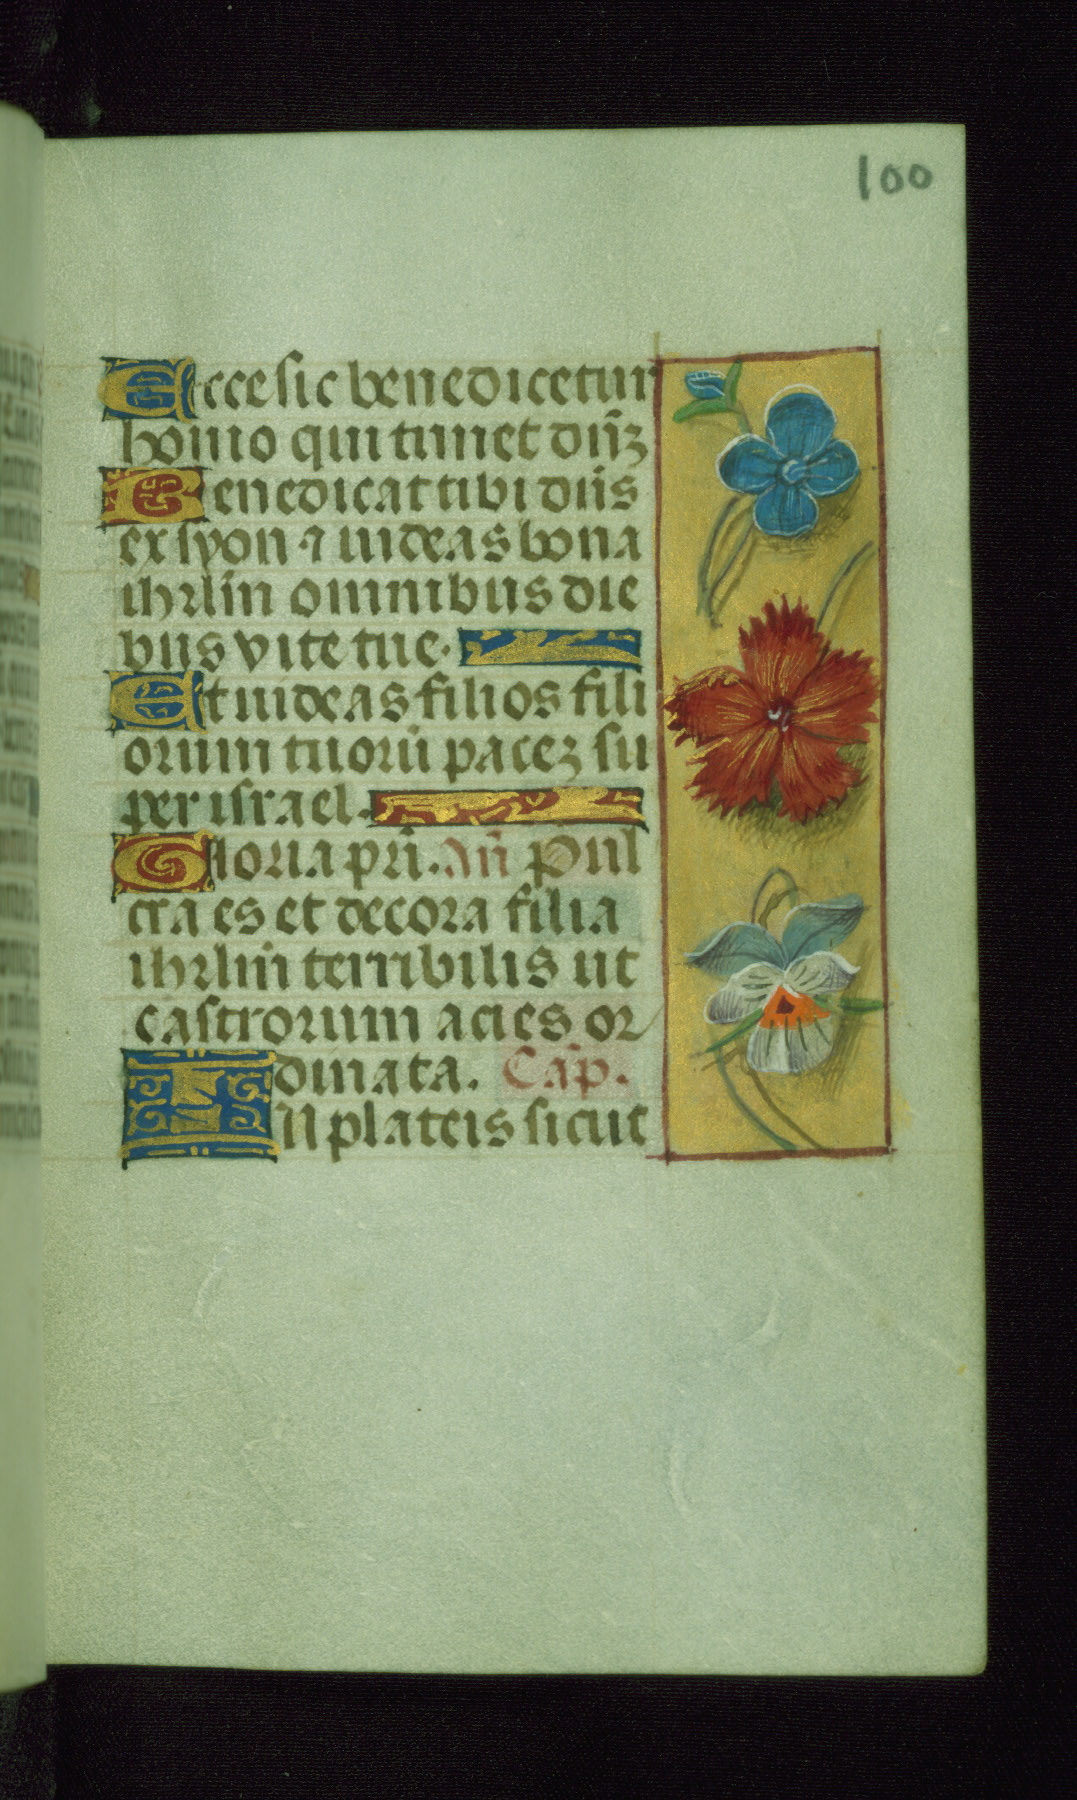 100
Ecce sic benedicetur
homo qui timet dn̄ꝫ
Benedicat tibi dn̄s
ex syon ⁊ uideas bona
ihrlm̄ omnibus die
bus vite tue.
Et uideas filios fili
orum tuorū paceꝫ su
per israel.
Gloria pri̅. An̄ Pul
cra es et decora filia
ihrlm̄ terribilis ut
castrorum acies or
dinata. Cap̄.
In plateis sicut